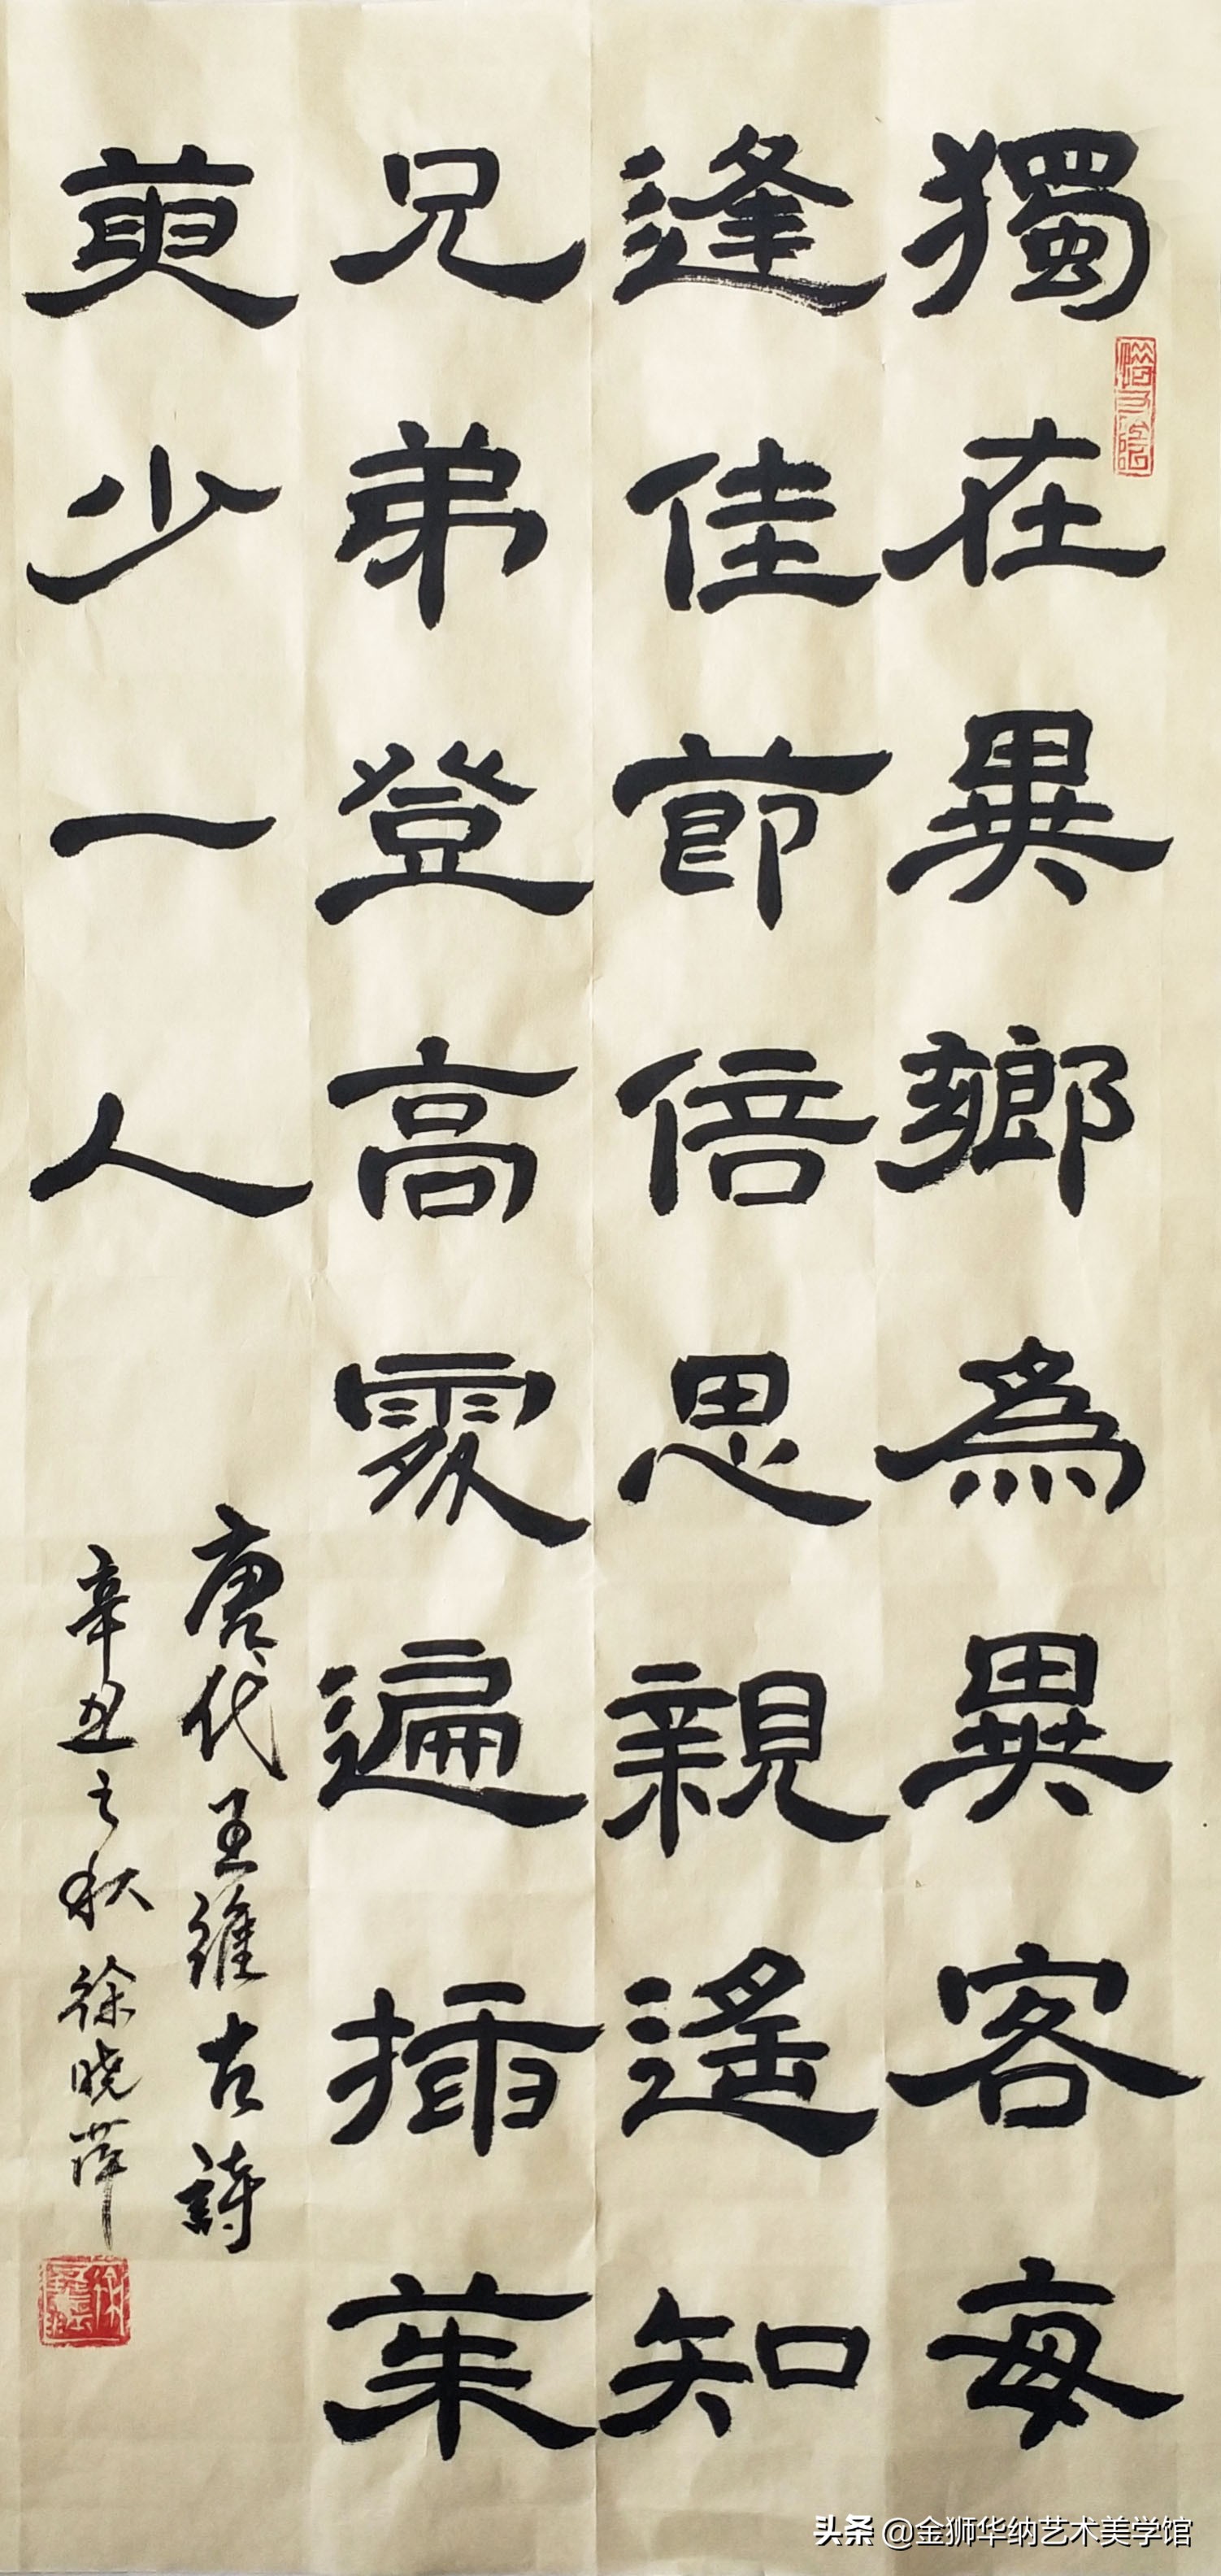 獨在異鄉為異客每
逢佳節倍思親遙知
兄弟登高處遍插茱
萸少一人
唐代王維古詩
辛丑之秋徐晓萍
头条 @金狮华纳艺术美学馆